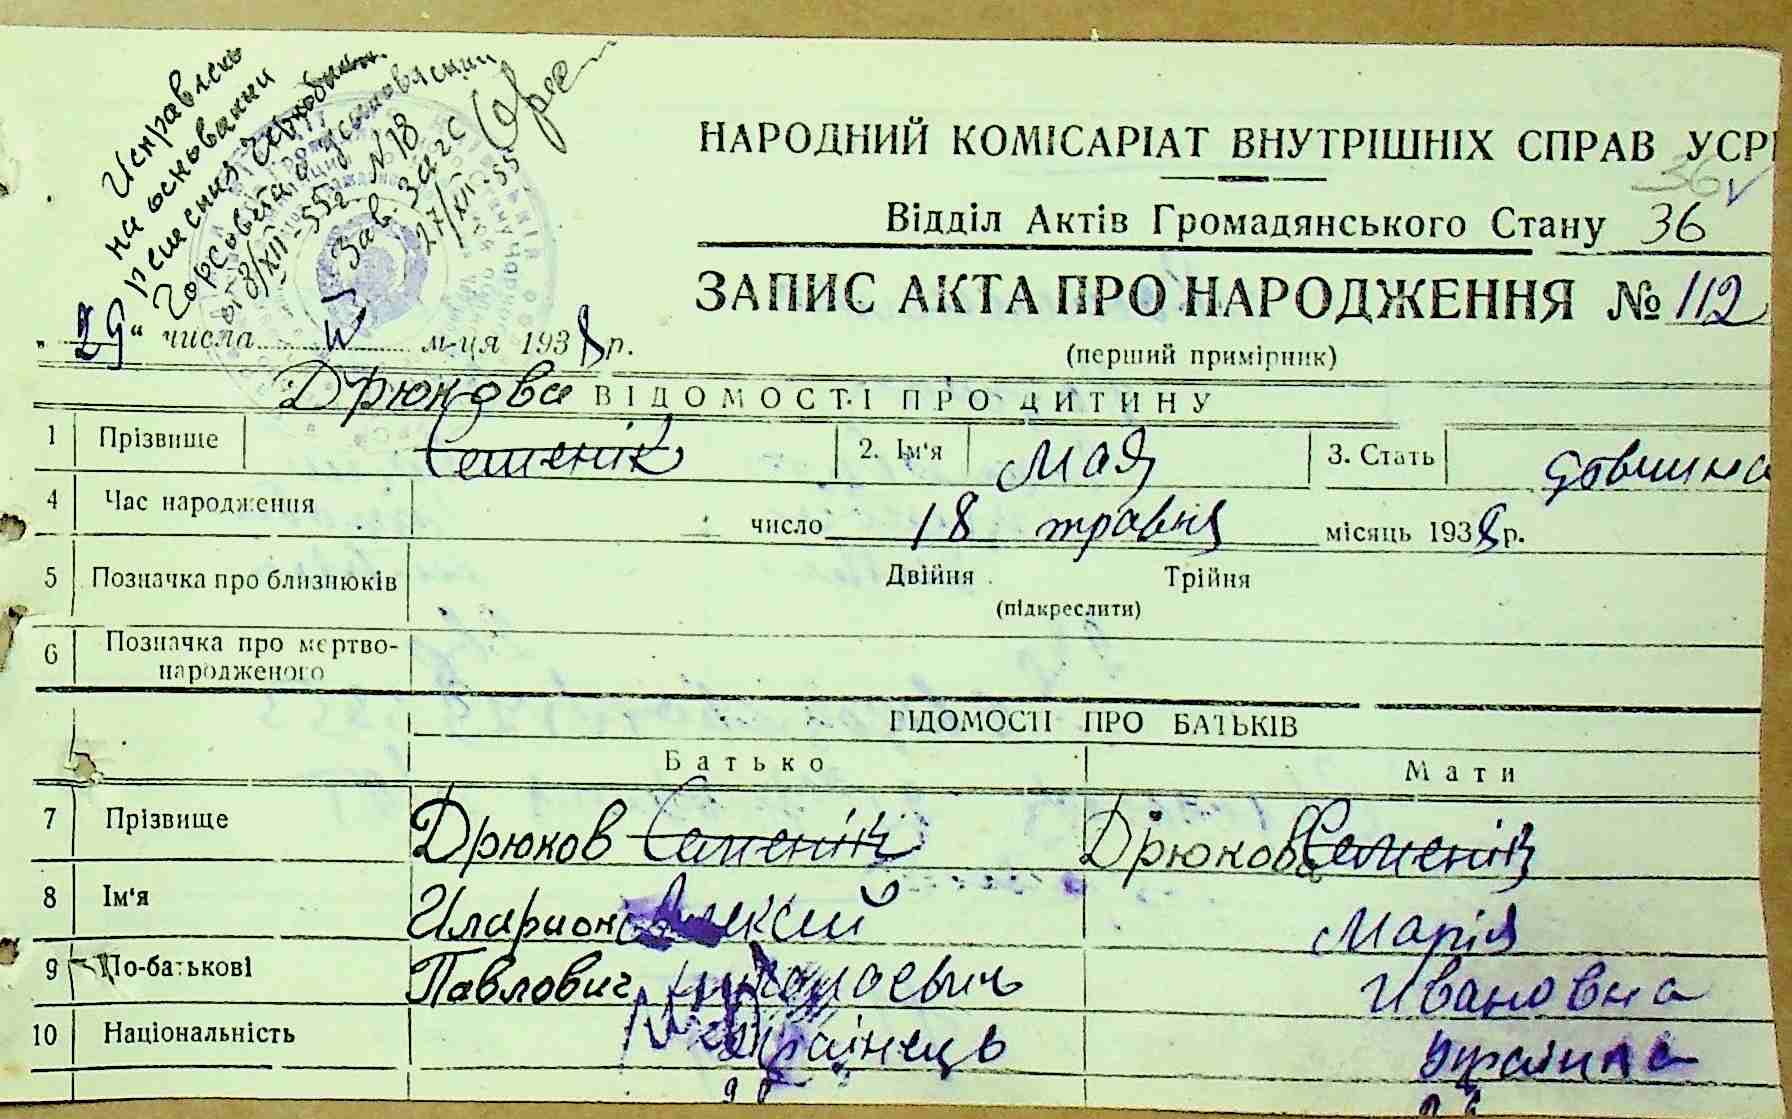 Исправлено
на основании
решения
Горсовета
от 8/XII-55г. №18
Зав. Загс
27/XII-55
НАРОДНИЙ КОМІСАРІАТ ВНУТРІШНІХ СПРАВ УСР
36
Відділ Актів Громадянського Стану 36
ЗАПИС АКТА ПРО НАРОДЖЕННЯ № 112
„29“ числа V м-ця 1938 р.
(перший примірник)
Дрюкова ВІДОМОСТІ ПРО ДИТИНУ
1 Прізвище Семенік 2. Ім'я Мая 3. Стать дівчина
4 Час народження число 18 травня місяць 1938 р.
5 Позначка про близнюків Двійня Трійня
(підкреслити)
6 Позначка про мертво-
народженого
ВІДОМОСТІ ПРО БАТЬКІВ
Батько Мати
7 Прізвище Дрюков Семенік Дрюкова Семенік
8 Ім'я Иларион Алексей Марія
9 По-батькові Павлович Николаевич Ивановна
10 Національність українець українка